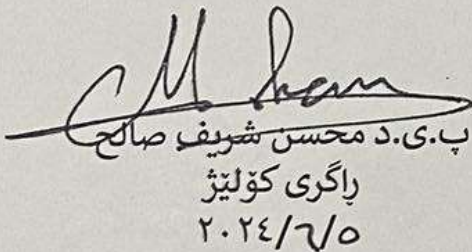 پ.ی.د محسن شریف صالح
ڕاگری کۆلێژ
٢٠٢٤/٦/٥